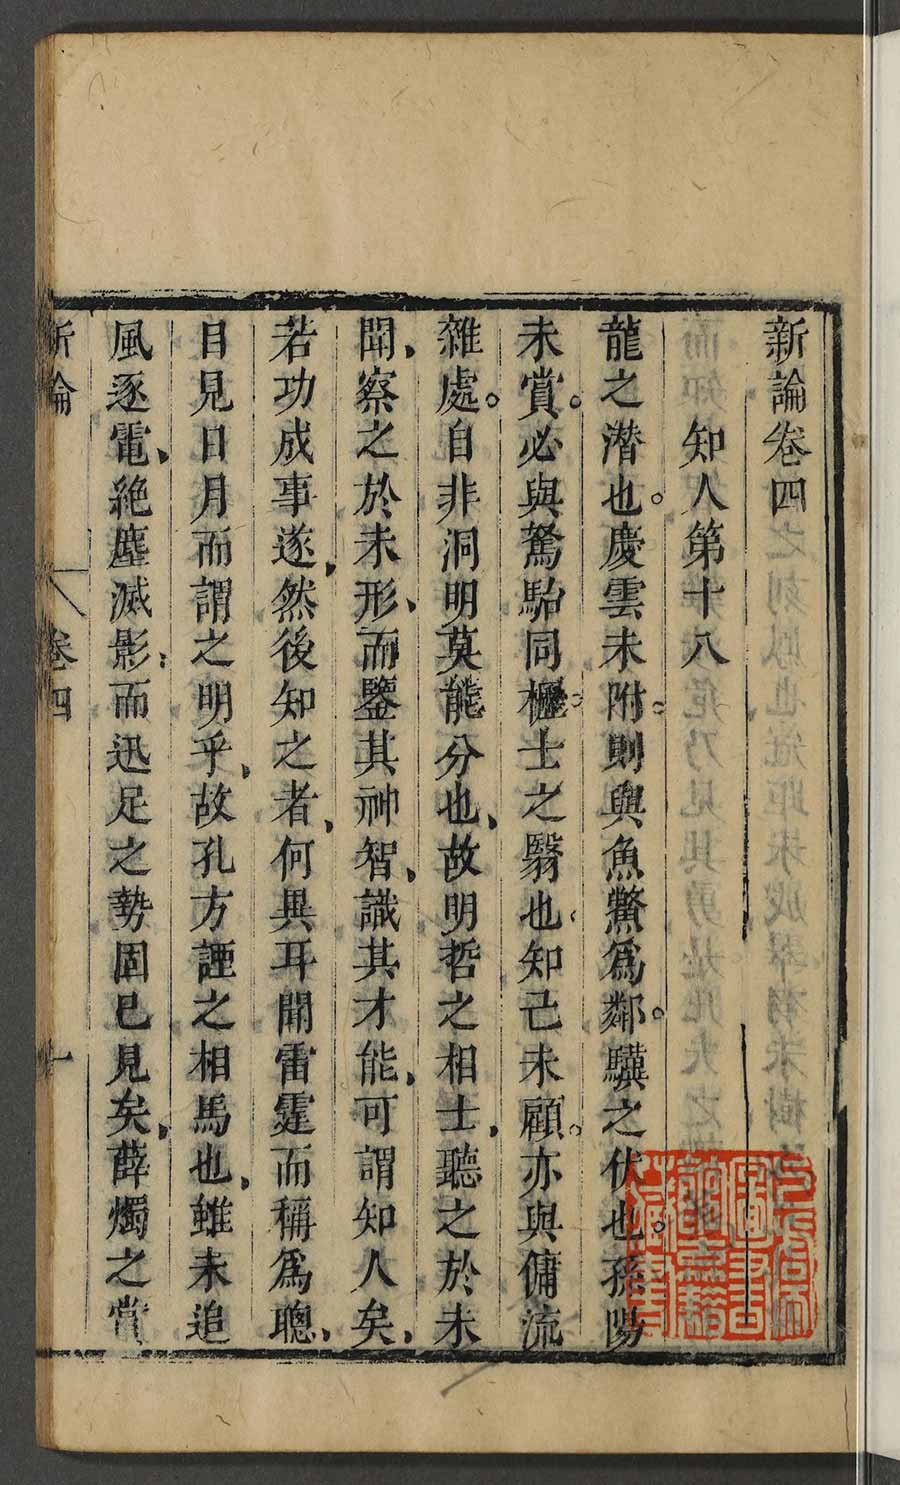 新論卷四
知人第十八
龍之潛也。慶雲未附。則與魚鱉爲鄰。驥之伏也。孫陽
未賞。必與駑駘同櫪。士之翳也、知己未顧。亦與傭流
雜處。自非洞明莫能分也、故明哲之相士、聽之於未
聞、察之於未形、而鑒其神智、識其才能、可謂知人矣、
若功成事遂、然後知之者、何異耳聞雷霆而稱爲聰、
目見日月而謂之明乎、故孔方諲之相馬也、雖未追
風逐電、絕塵滅影、而迅足之勢固已見矣、薛燭之賞
新論 卷四 一